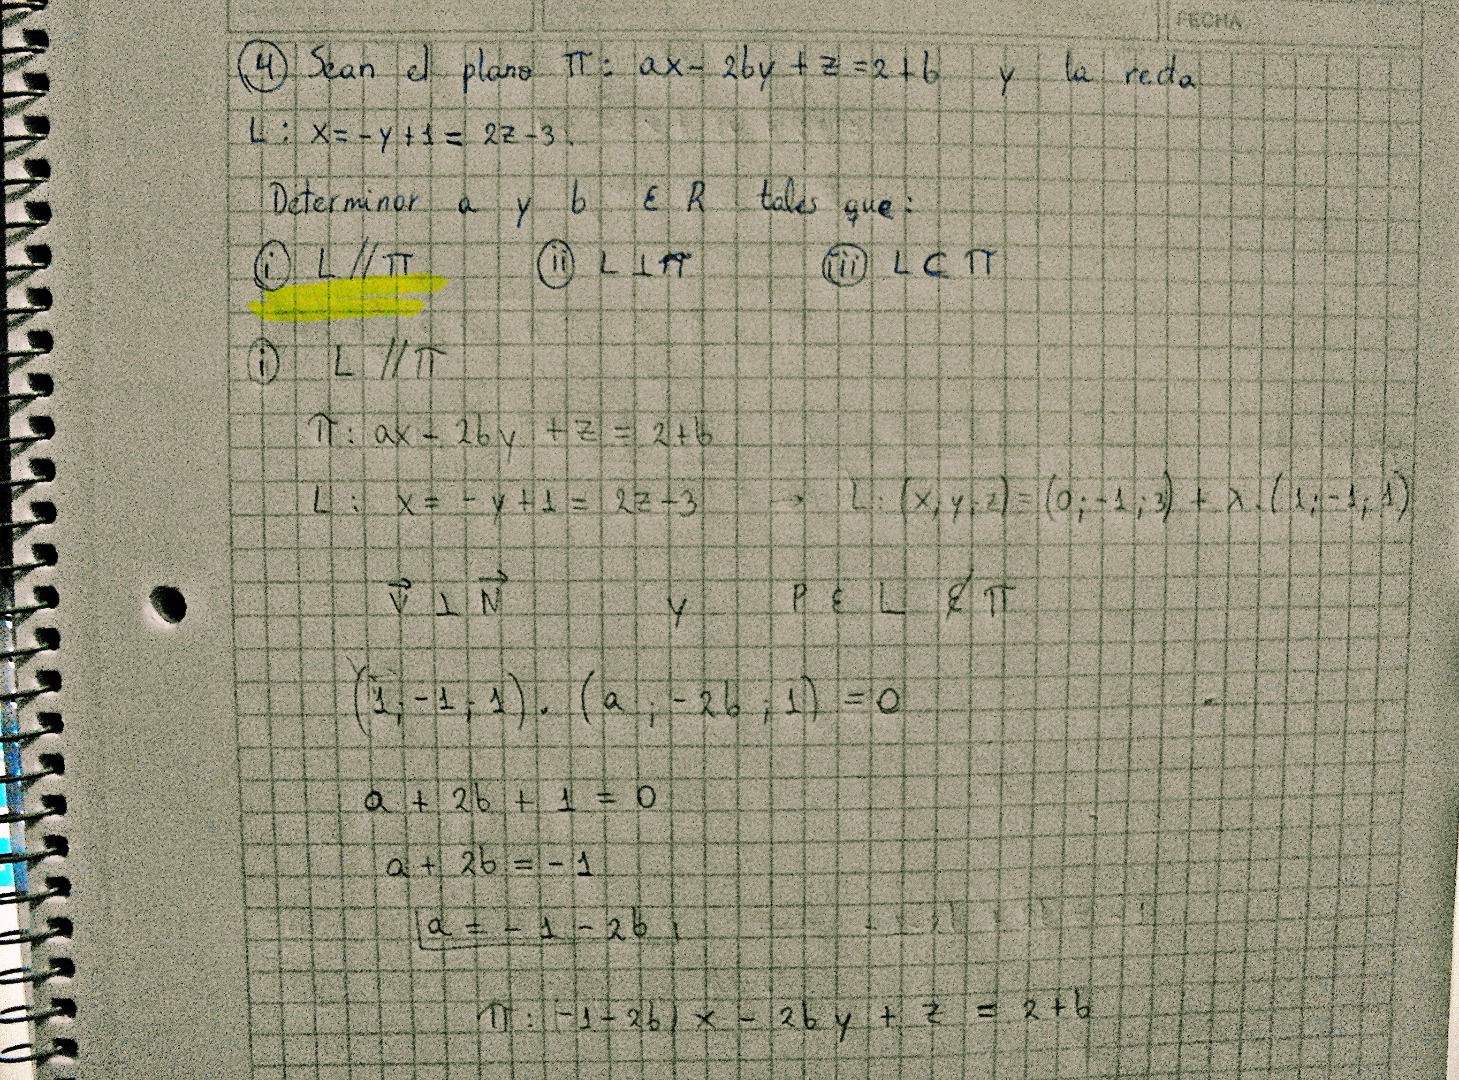 FECHA
④ Sean el plano π: ax - 2by + z = 2+b y la recta
L: x = -y+1 = 2z-3.
Determinar a y b ∈ R tales que:
ⓘ L // π ⓘⓘ L ⊥ π ⓘⓘⓘ L ⊂ π
ⓘ L // π
π: ax - 2by + z = 2+b
L: x = -y+1 = 2z-3 → L: (x,y,z) = (0;-1;3) + λ.(1;-1;1)
V⃗ ⊥ N⃗ y P ∈ L ∉ π
(1;-1;1).(a;-2b;1) = 0
a + 2b + 1 = 0
a + 2b = -1
a = -1 - 2b
π: -1-2b) x - 2by + z = 2+b